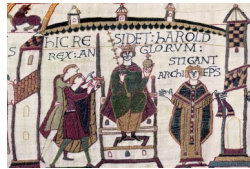 HIC RE SIDET: hAROLD
REX: AN GLORVM:
STIGANT
ARChI EPS